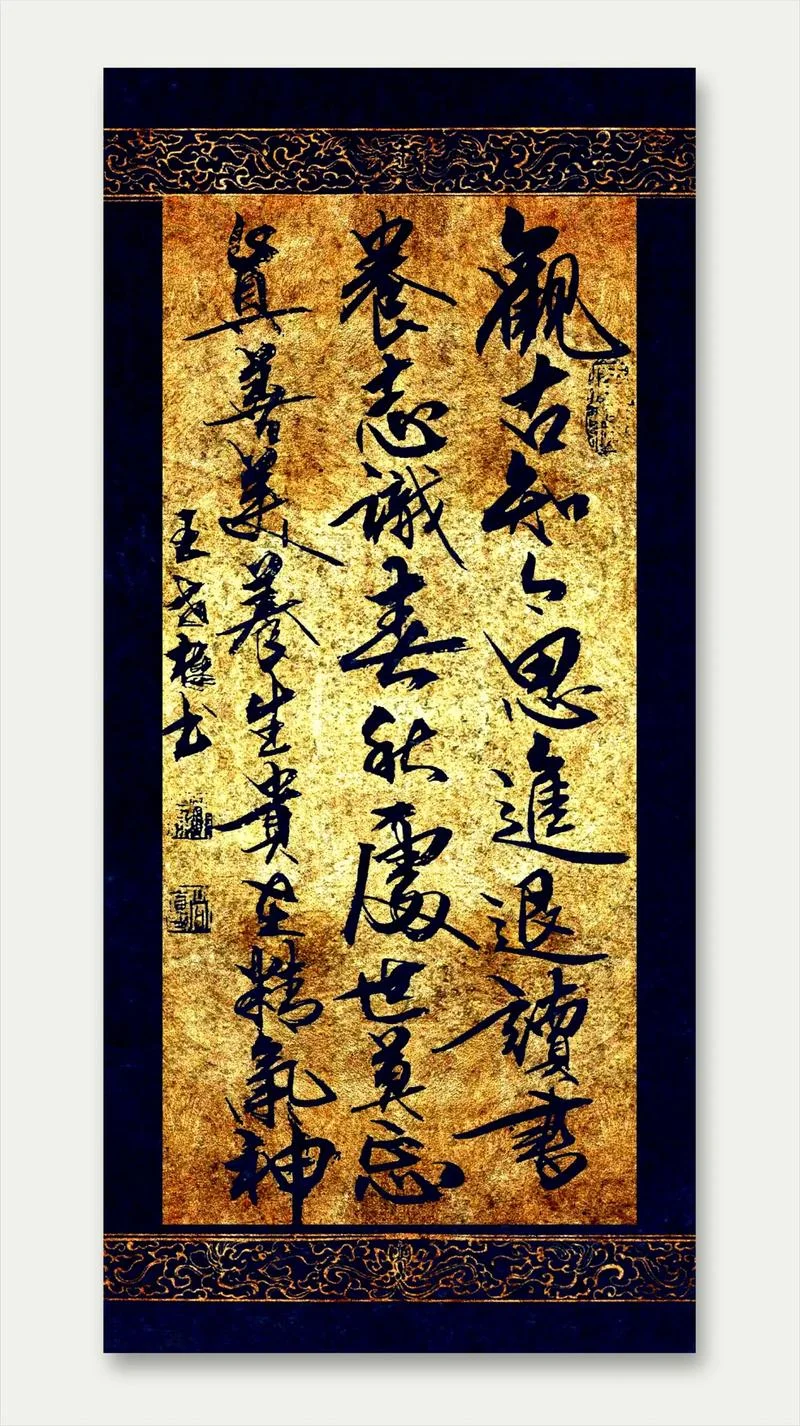 觀古知今思進退讀書
養志識春秋處世莫忘
真善美養生貴在精氣神